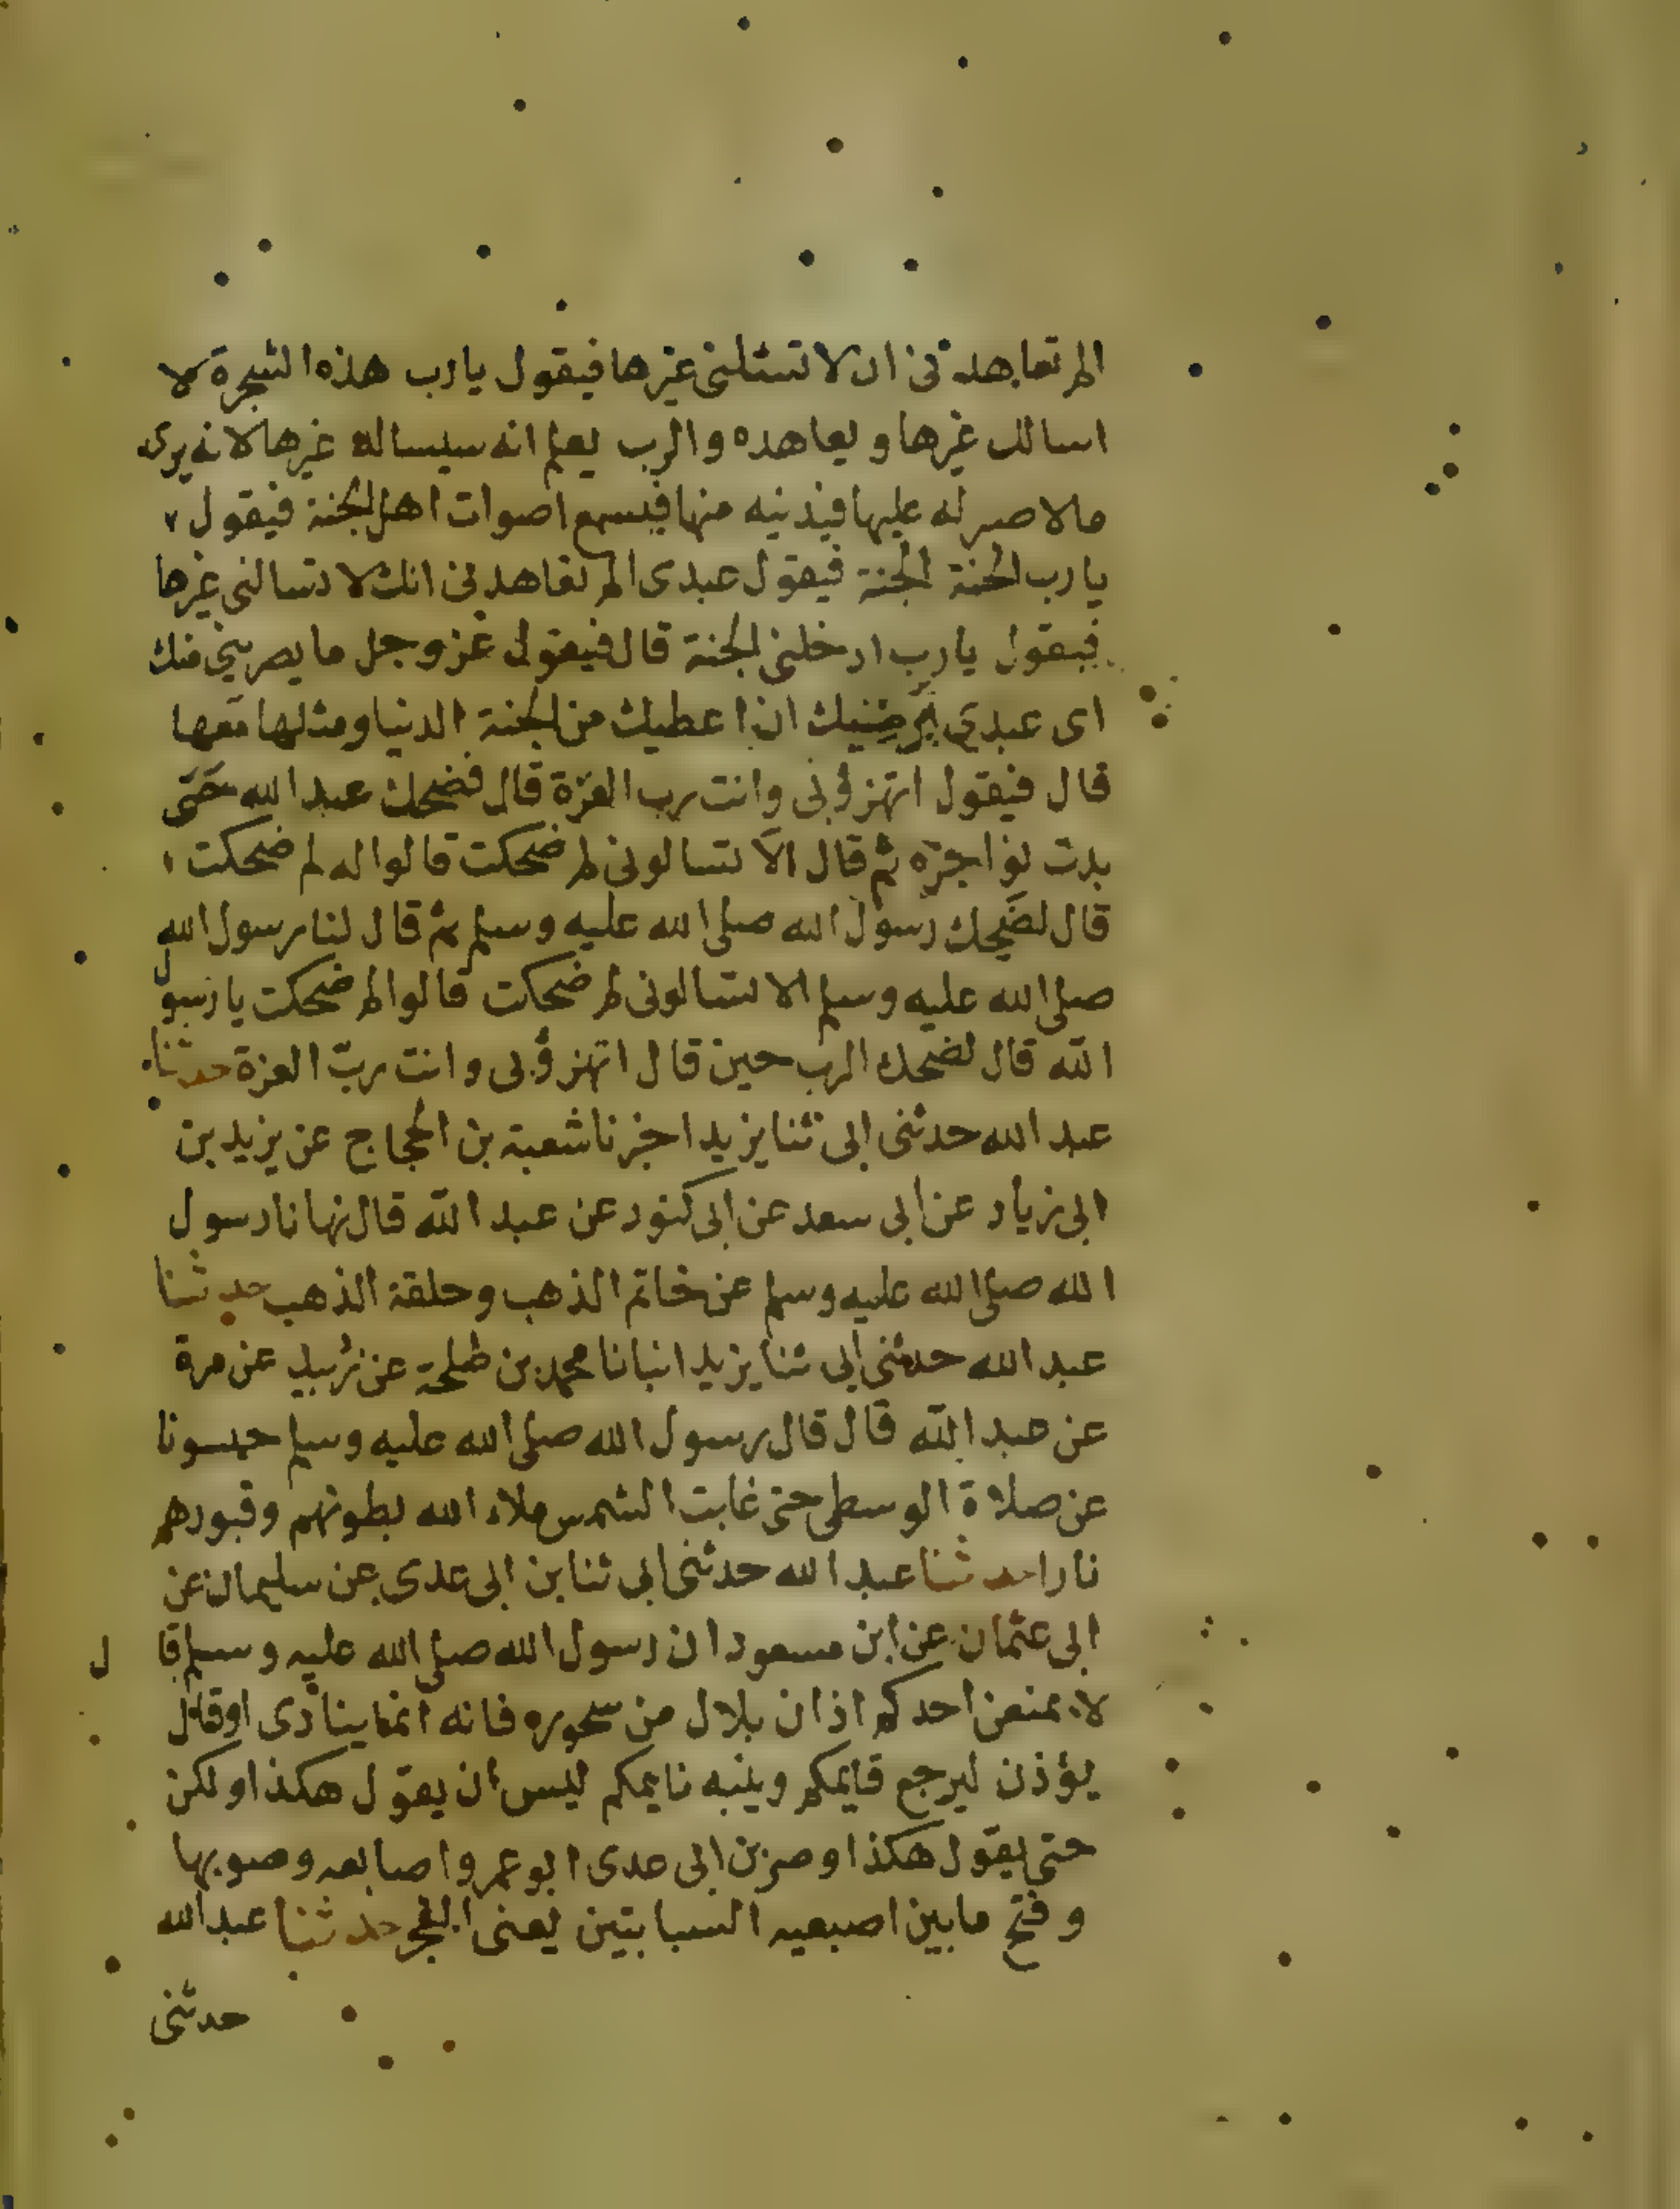 الم تعاهدنى ان لا تسئلنى غيرها فيقول يارب هذه الشجرة لا
اسالك غيرها ويعاهده والرب يعلم انه سيساله غيرها لانه يرى
مالا صبر له عليها فيدنيه منها فيسمع اصوات اهل الجنة فيقول
يارب الجنة الجنة فيقول عبدى الم تعاهدنى انك لا تسالنى غيرها
فيقول يارب ادخلنى الجنة قال فيقول عز وجل ما يصرينى منك
اى عبدي ايرضيك ان اعطيك من الجنة الدنيا ومثلها معها
قال فيقول اتهزؤ بى وانت رب العزة قال فضحك عبد الله حتى
بدت نواجزه ثم قال الا تسالونى لم ضحكت قالوا له لم ضحكت
قال لضحك رسول الله صلى الله عليه وسلم ثم قال لنا رسول الله
صلى الله عليه وسلم الا تسالونى لم ضحكت قالوا لم ضحكت يا رسول
الله قال لضحك الرب حين قال اتهزؤ بى وانت ربّ العزة حدثنا
عبد الله حدثنى ابى ثنا يزيد اخبرنا شعبة بن الحجاج عن يزيد بن
ابى زياد عن ابى سعد عن ابى كنود عن عبد الله قال نهانا رسول
الله صلى الله عليه وسلم عن خاتم الذهب وحلقة الذهب حدثنا
عبد الله حدثنى ابى ثنا يزيد انبانا محمد بن طلحة عن زبيد عن مرة
عن عبد الله قال قال رسول الله صلى الله عليه وسلم حبسونا
عن صلاة الوسطى حتى غابت الشمس ملاء الله بطونهم وقبورهم
نارا حدثنا عبد الله حدثنى ابى ثنا بن ابى عدى عن سليمان عن
ابى عثمان عن ابن مسعود ان رسول الله صلى الله عليه وسلم قال
لا يمنعن احدكم اذان بلال من سحوره فانه انما ينادى او قال
يؤذن ليرجع قايمكم وينبه نايمكم ليس ان يقول هكذا ولكن
حتى يقول هكذا وضم بن ابى عدى ابو عمرو اصابعه وصوبها
وفتح مابين اصبعيه السبابتين يعنى الفجر حدثنا عبد الله
حدثنى